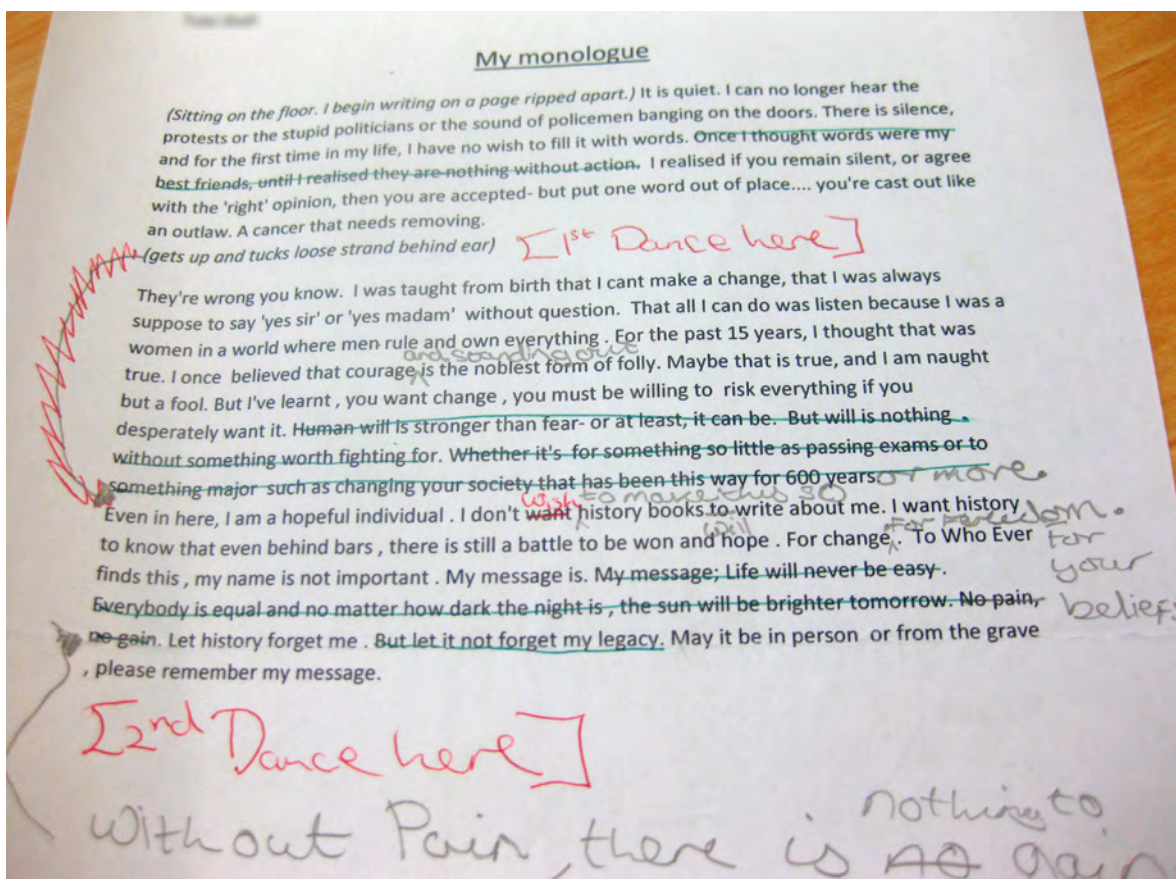 My monologue
(Sitting on the floor. I begin writing on a page ripped apart.) It is quiet. I can no longer hear the
protests or the stupid politicians or the sound of policemen banging on the doors. There is silence,
and for the first time in my life, I have no wish to fill it with words. Once I thought words were my
best friends, until I realised they are nothing without action. I realised if you remain silent, or agree
with the 'right' opinion, then you are accepted- but put one word out of place.... you're cast out like
an outlaw. A cancer that needs removing.
(gets up and tucks loose strand behind ear) [1st Dance here]
They're wrong you know. I was taught from birth that I cant make a change, that I was always
suppose to say 'yes sir' or 'yes madam' without question. That all I can do was listen because I was a
women in a world where men rule and own everything . For the past 15 years, I thought that was
and standing out
true. I once believed that courage is the noblest form of folly. Maybe that is true, and I am naught
but a fool. But I've learnt , you want change , you must be willing to risk everything if you
desperately want it. Human will is stronger than fear- or at least, it can be. But will is nothing
without something worth fighting for. Whether it's for something so little as passing exams or to
something major such as changing your society that has been this way for 600 years. or more.
wish to make this so
Even in here, I am a hopeful individual . I don't want history books to write about me. I want history
will for freedom.
to know that even behind bars , there is still a battle to be won and hope . For change . To Who Ever for
finds this , my name is not important . My message is. My message; Life will never be easy . your
Everybody is equal and no matter how dark the night is , the sun will be brighter tomorrow. No pain, beliefs
no gain. Let history forget me . But let it not forget my legacy. May it be in person or from the grave
, please remember my message.
[2nd Dance here]
nothing to
Without Pain, there is no gain